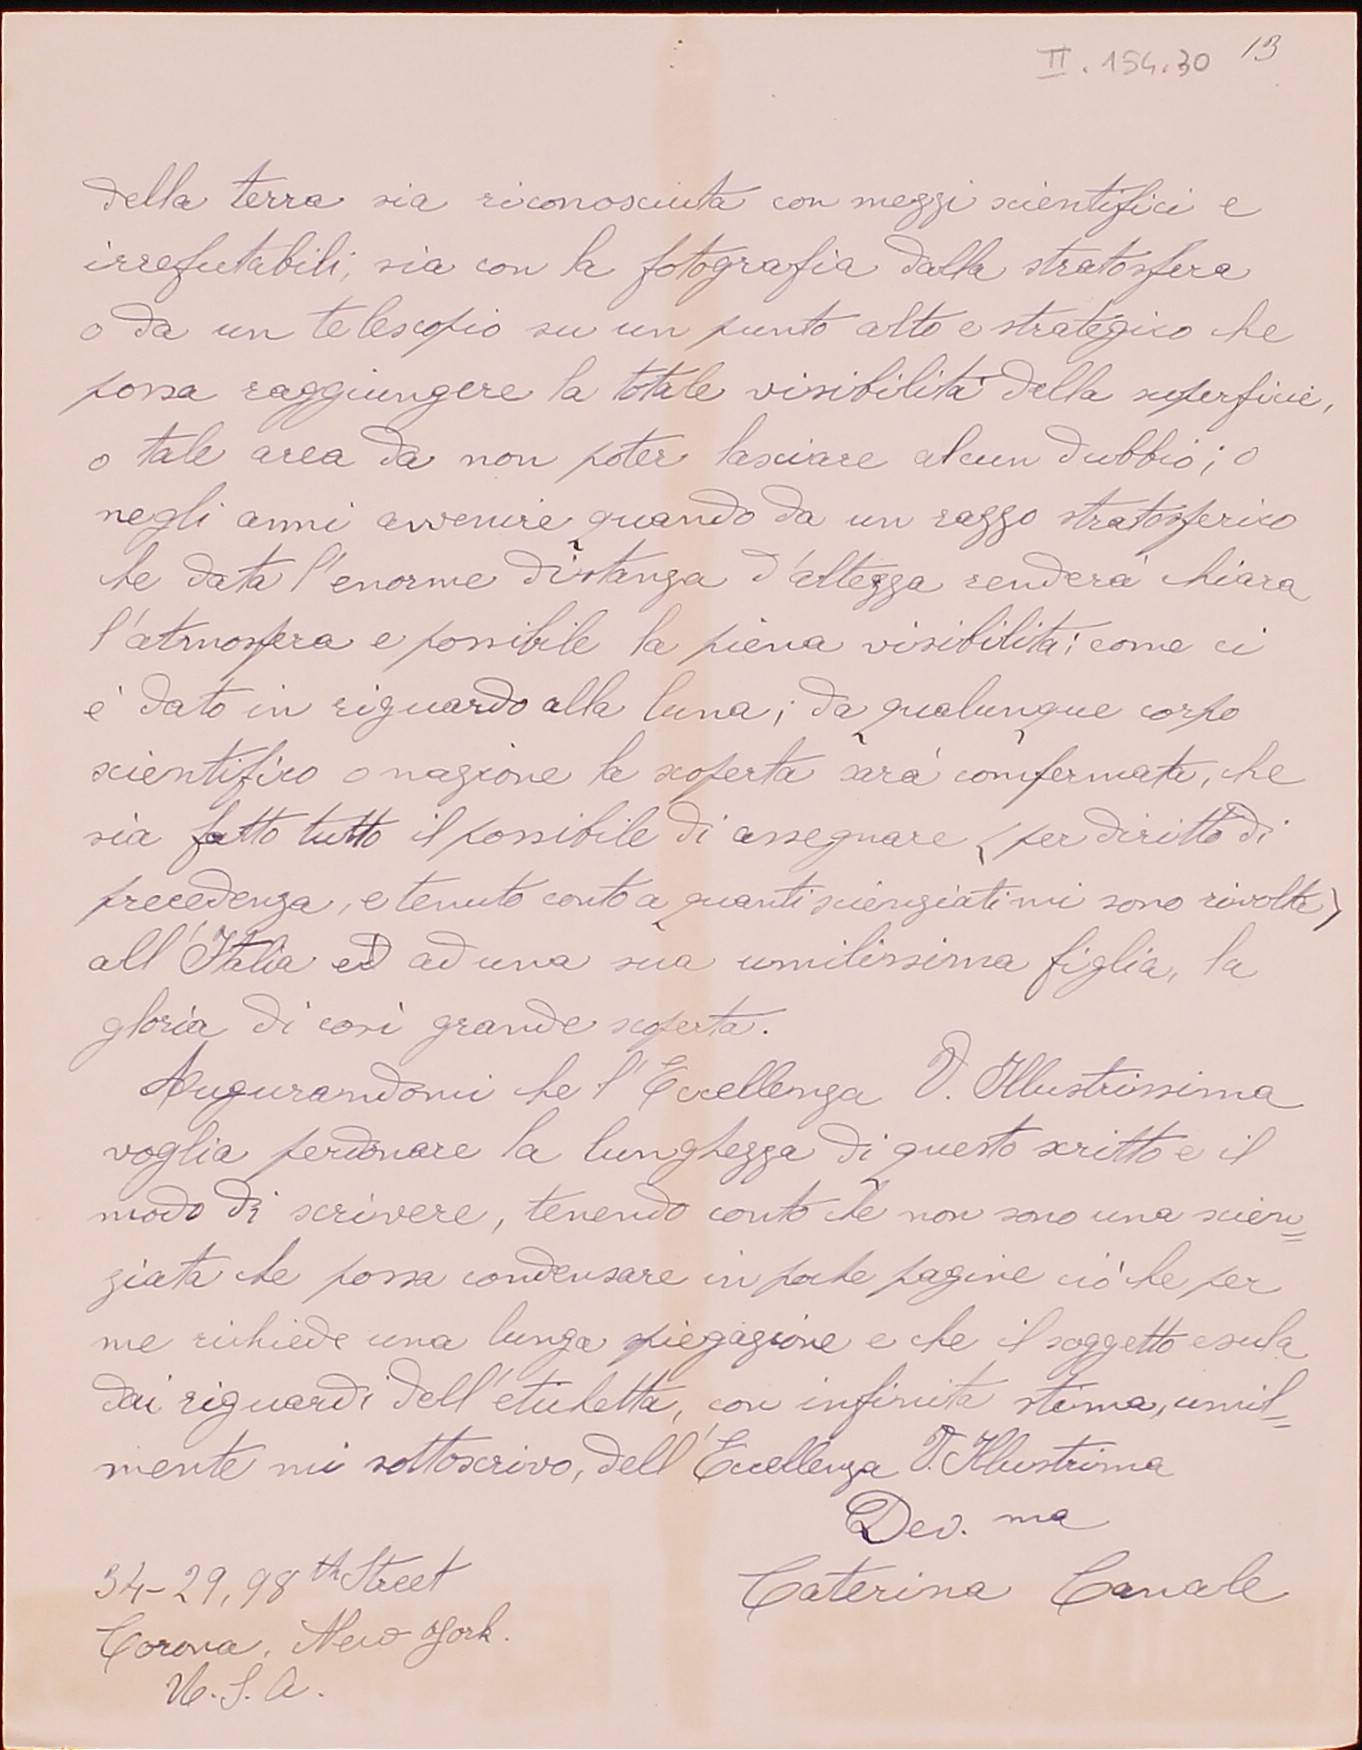 II.154.30 13
della terra sia riconosciuta con mezzi scientifici e
irrefutabili; sia con la fotografia dalla stratosfera
o da un telescopio su un punto alto e strategico che
possa raggiungere la totale visibilitá della superficie,
o tale area da non poter lasciare alcun dubbio; o
negli anni avvenire quando da un razzo stratosferico
che data l'enorme distanza d'altezza renderá chiara
l'atmosfera e possibile la piena visibilitá: come ci
é dato in riguardo alla luna; da qualunque corpo
scientifico o nazione la scoperta sará confermata, che
sia fatto tutto il possibile di assegnare (per diritto di
precedenza, e tenuto conto a quanti scienziati mi sono rivolta)
all'Italia ed ad una sua umilissima figlia, la
gloria di cosí grande scoperta.
Augurandomi che l'Eccellenza V. Illustrissima
voglia perdonare la lunghezza di questo scritto e il
modo di scrivere, tenendo conto che non sono una scien=
ziata che possa condensare in poche pagine ció che per
me richiede una lunga spiegazione e che il soggetto esula
dai riguardi dell'etichetta, con infinita stima, umil=
mente mi sottoscrivo, dell'Eccellenza V. Illustrima
Dev. ma
Caterina Canale
34-29, 98th Street
Corona, New York.
U.S.A.